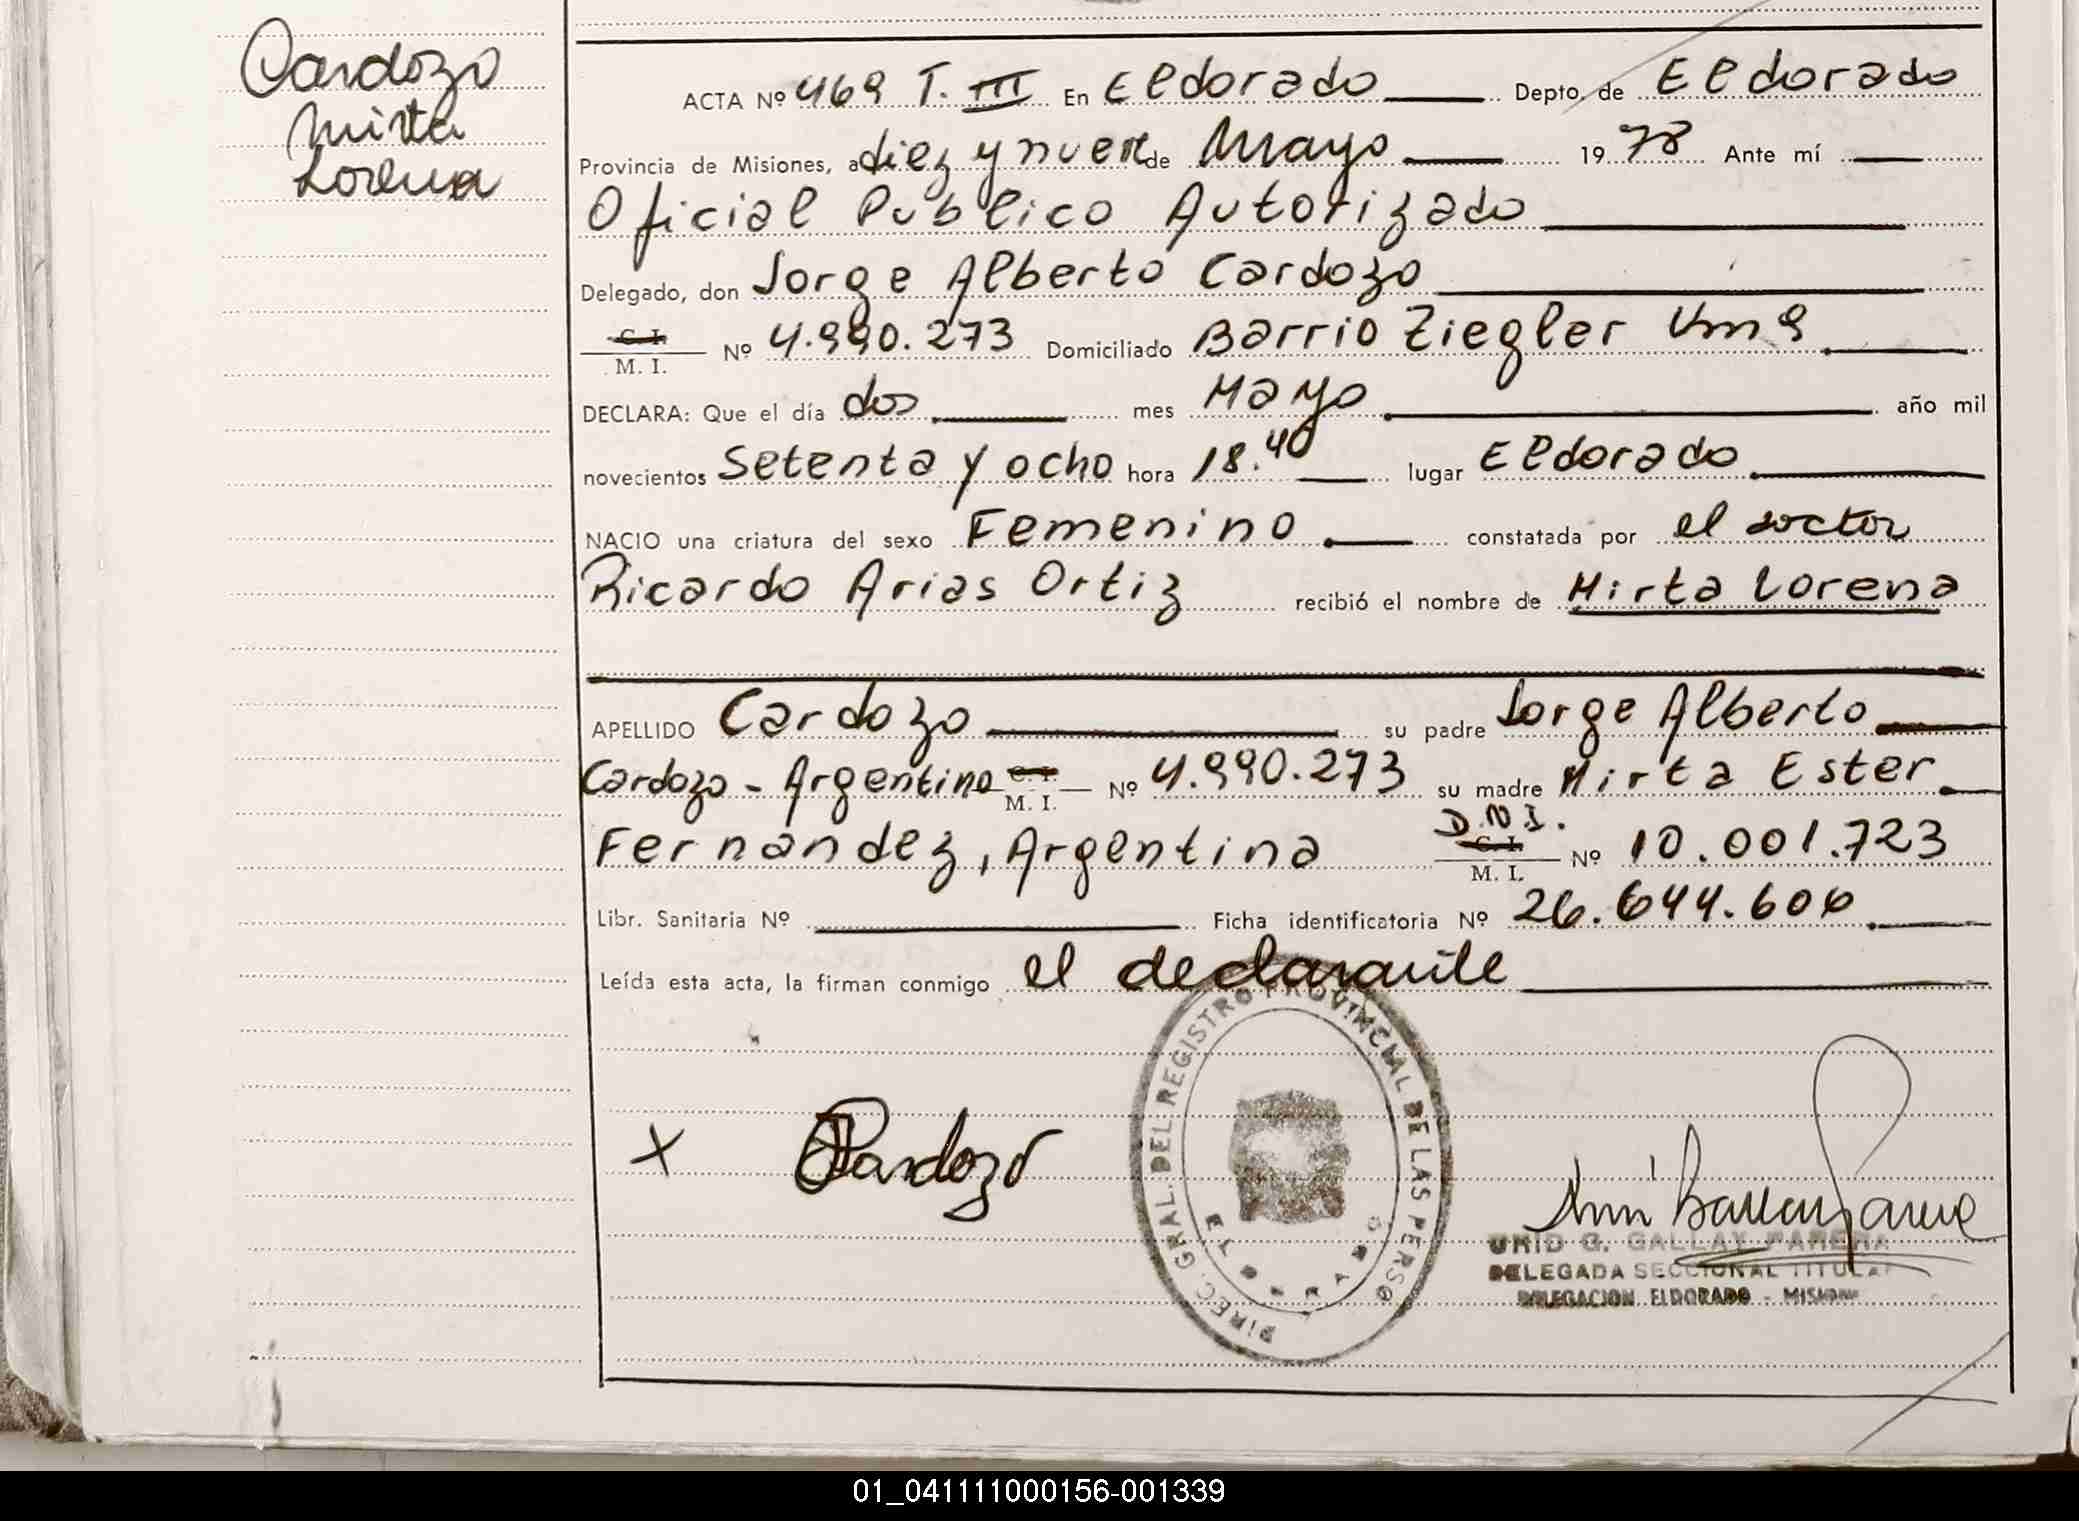 Cardozo
Mirta
Lorena
ACTA Nº 469 T. III En Eldorado Depto. de Eldorado
Provincia de Misiones, a diez y nueve de Mayo 19 78 Ante mí
Oficial Publico Autorizado
Delegado, don Jorge Alberto Cardozo
C. I.
M. I. Nº 4.990.273 Domiciliado Barrio Ziegler Km 9
DECLARA: Que el día dos mes Mayo año mil
novecientos Setenta y ocho hora 18.40 lugar Eldorado
NACIO una criatura del sexo Femenino constatada por el doctor
Ricardo Arias Ortiz recibió el nombre de Mirta Lorena
APELLIDO Cardozo su padre Jorge Alberto
Cardozo - Argentino C. I. M. I. Nº 4.990.273 su madre Mirta Ester
Fernandez, Argentina D.N.I. C. I. M. I. Nº 10.001.723
Libr. Sanitaria Nº Ficha identificatoria Nº 26.644.606
Leída esta acta, la firman conmigo el declarante
DIREC. GRAL. DEL REGISTRO PROVINCIAL DE LAS PERSO
ELDORADO
X Cardozo
G. GALLAY PARERA
DELEGADA SECCIONAL TITULAR
DELEGACION ELDORADO - MISIONES
01_041111000156-001339